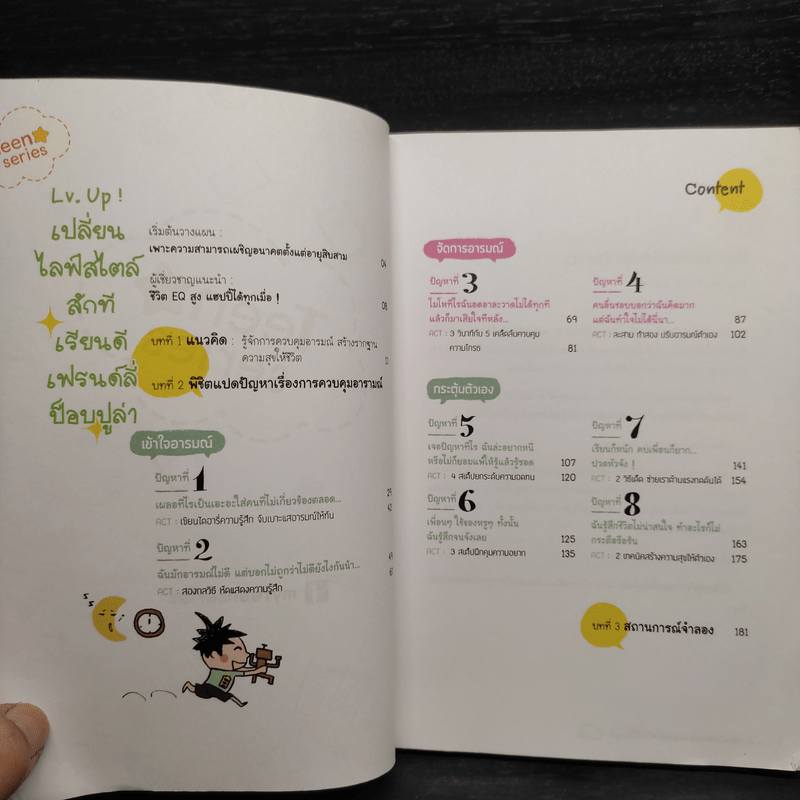 een
series
Lv. Up !
เปลี่ยน
ไลฟ์สไตล์
สักที
เรียนดี
เฟรนด์ลี่
ป๊อบปูล่า
เริ่มต้นวางแผน :
เพาะความสามารถเผชิญอนาคตตั้งแต่อายุสิบสาม 04
ผู้เชี่ยวชาญแนะนำ :
ชีวิต EQ สูง แฮปปี้ได้ทุกเมื่อ ! 08
บทที่ 1 แนวคิด : รู้จักการควบคุมอารมณ์ สร้างรากฐาน
ความสุขให้ชีวิต
บทที่ 2 พิชิตแปดปัญหาเรื่องการควบคุมอารามณ์
เข้าใจอารมณ์
ปัญหาที่ 1
เผลอทีไรเป็นเอะอะใส่คนที่ไม่เกี่ยวข้องตลอด...
ACT : เขียนไดอารี่ความรู้สึก จับเบาะแสอารมณ์ให้ทัน
ปัญหาที่ 2
ฉันมักอารมณ์ไม่ดี แต่บอกไม่ถูกว่าไม่ดียังไงกันน้า...
ACT : สองกลวิธี หัดแสดงความรู้สึก
Content
จัดการอารมณ์
ปัญหาที่ 3
โมโหทีไรฉันอดอาละวาดไม่ได้ทุกที
แล้วก็มาเสียใจทีหลัง... 69
ACT : 3 วินาทีกับ 5 เคล็ดลับควบคุม
ความโกรธ 81
ปัญหาที่ 4
คนอื่นชอบบอกว่าฉันคิดมาก
แต่ฉันทำใจไม่ได้นี่นา... 87
ACT : ละสาม ทำสอง ปรับอารมณ์ตัวเอง 102
กระตุ้นตัวเอง
ปัญหาที่ 5
เจอปัญหาทีไร ฉันล่ะอยากหนี
หรือไม่ก็ยอมแพ้ให้รู้แล้วรู้รอด 107
ACT : 4 สเต็ปยกระดับความอดทน 120
ปัญหาที่ 6
เพื่อนๆ ใช้ของหรูๆ ทั้งนั้น
ฉันรู้สึกจนจังเลย 125
ACT : 3 สเต็ปฝึกคุมความอยาก 135
ปัญหาที่ 7
เรียนก็หนัก คบเพื่อนก็ยาก...
ปวดหัวจัง ! 141
ACT : 2 วิธีเด็ด ช่วยเราต้านแรงกดดันได้ 154
ปัญหาที่ 8
ฉันรู้สึกชีวิตไม่น่าสนใจ ทำอะไรก็ไม่
กระตือรือร้น 163
ACT : 2 เทคนิคสร้างความสุขให้ตัวเอง 175
บทที่ 3 สถานการณ์จำลอง 181